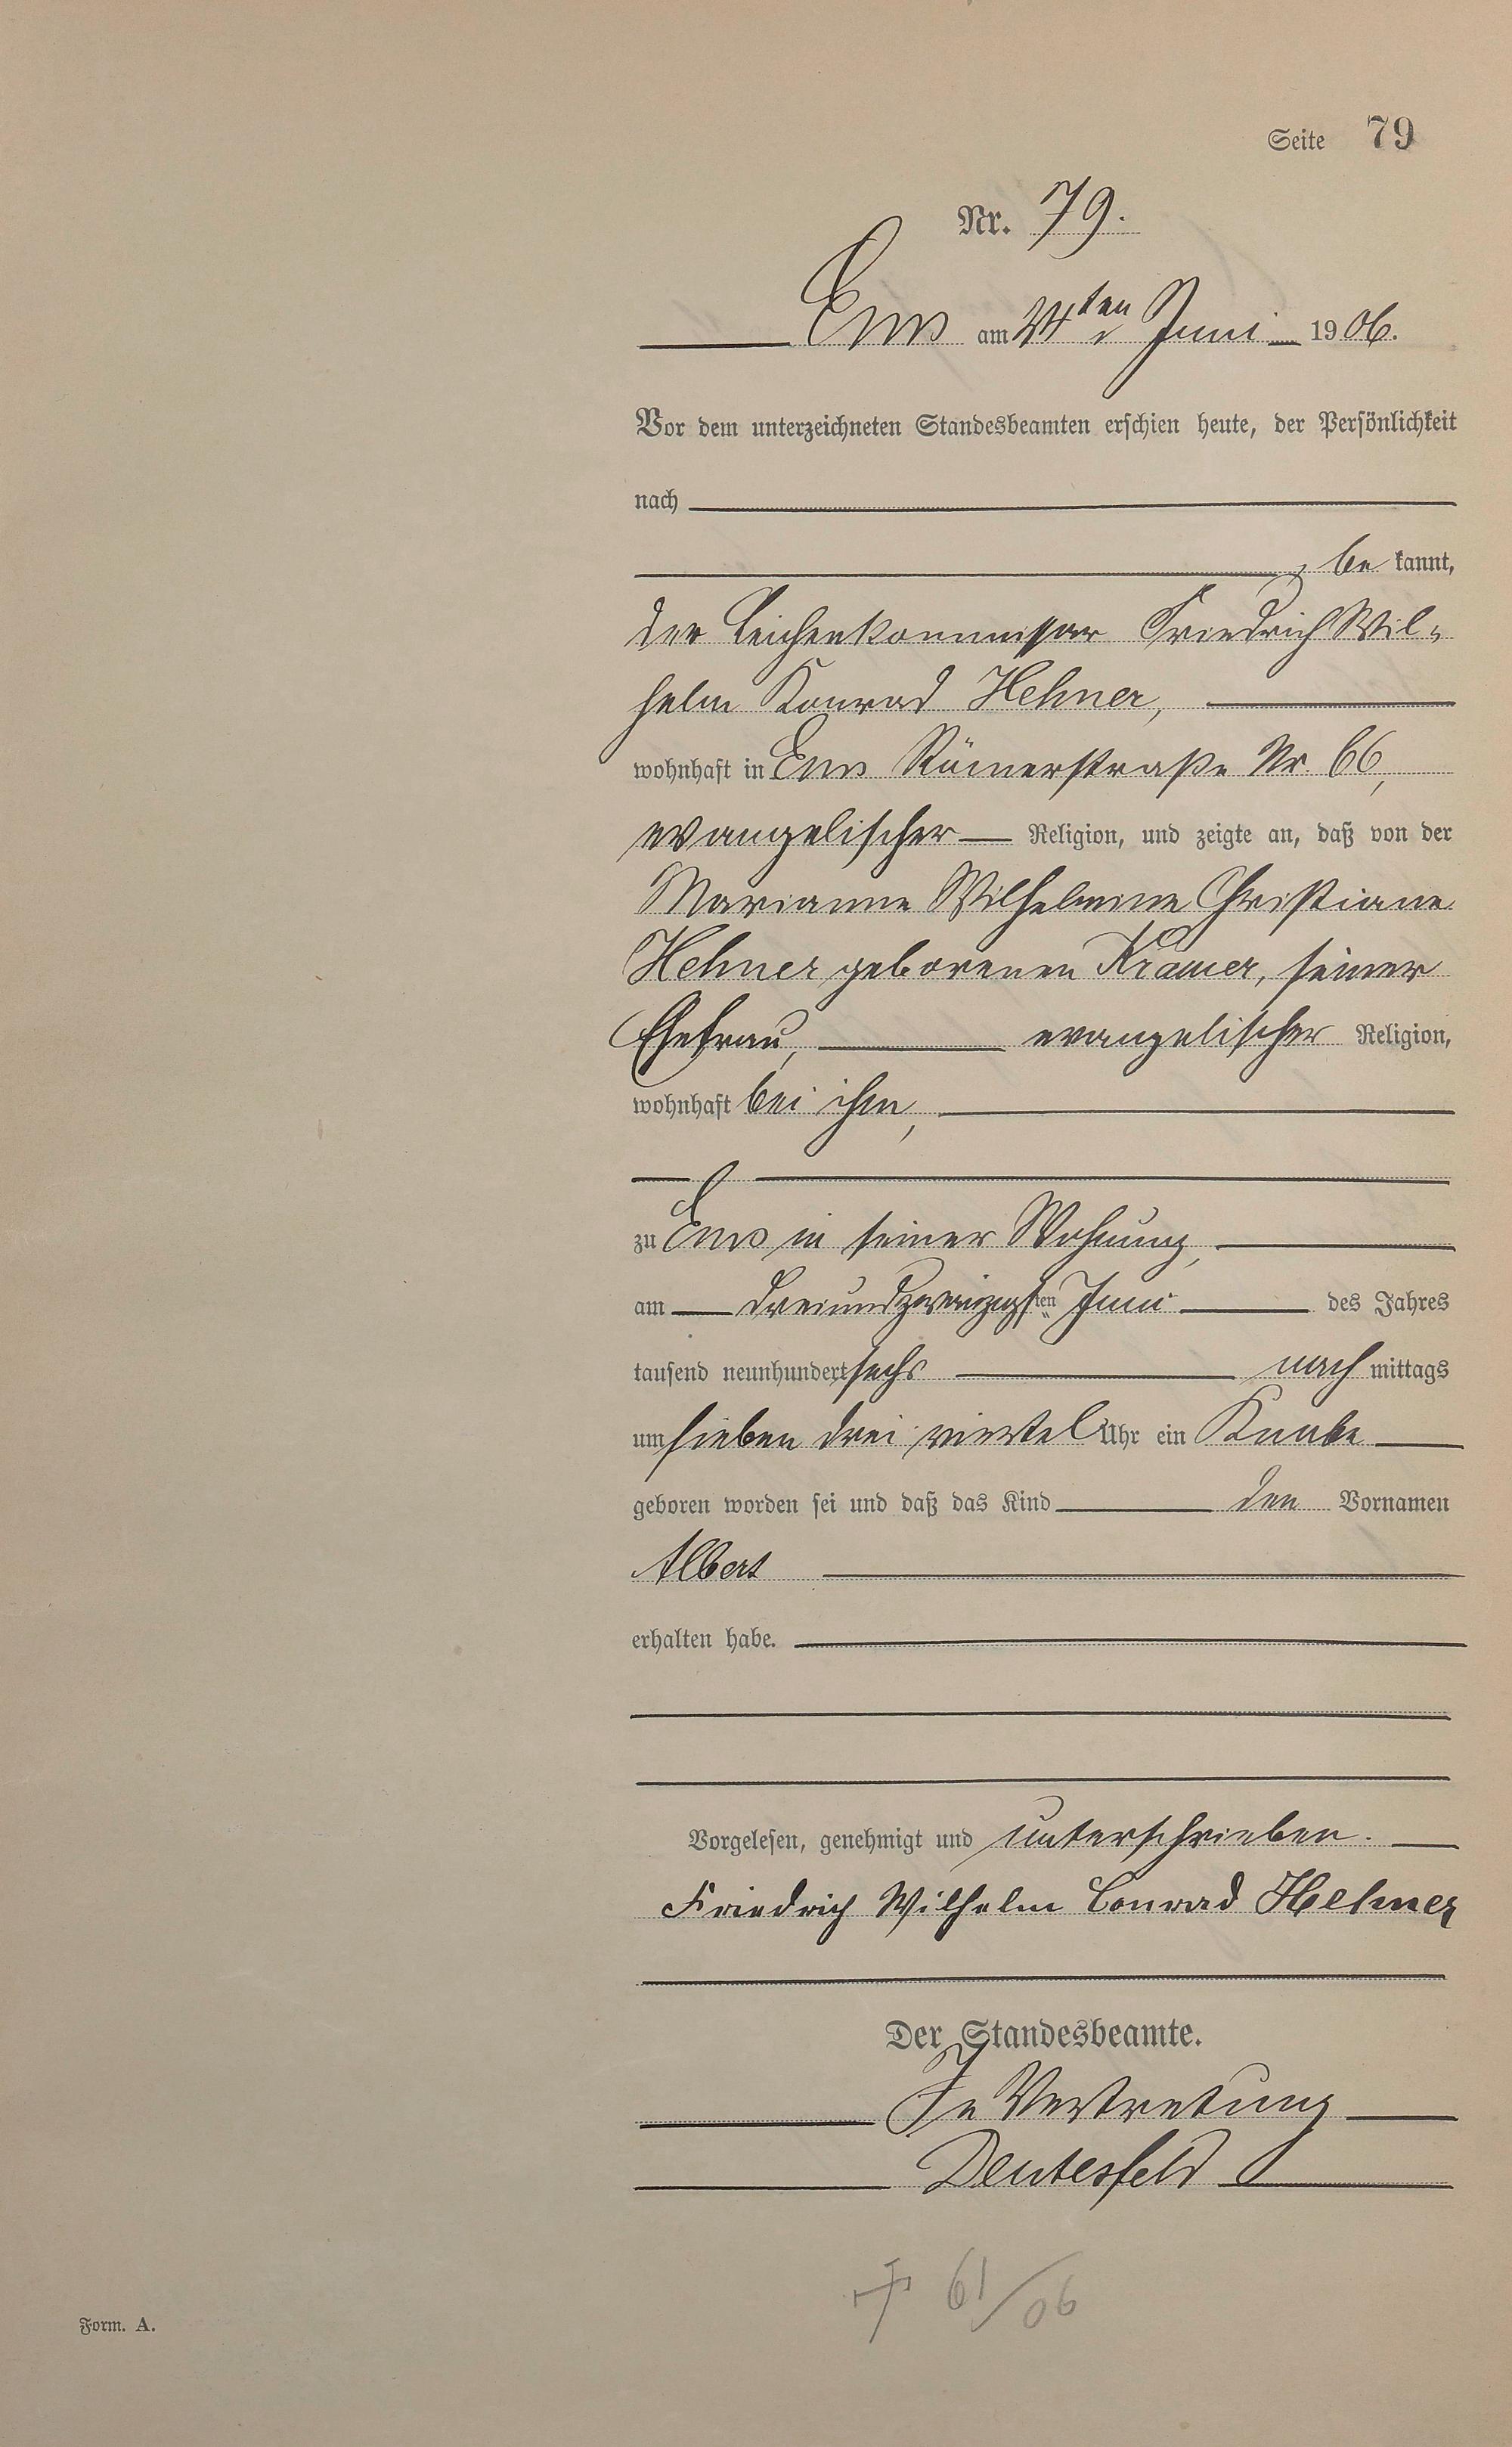 Seite 79
Nr. 79.
Ems am 24ten Juni 1906.
Vor dem unterzeichneten Standesbeamten erschien heute, der Persönlichkeit
nach
be kannt,
der Leichenkommissar Friedrich Wil-
helm Konrad Hehner,
wohnhaft in Ems Römerstraße Nr. 66,
evangelischer Religion, und zeigte an, daß von der
Marianne Wilhelmine Christiane
Hehner geborenen Krämer, seiner
Ehefrau, evangelischer Religion,
wohnhaft bei ihm,
zu Ems in seiner Wohnung,
am dreiundzwanzigsten Juni des Jahres
tausend neunhundert sechs nach mittags
um sieben drei viertel Uhr ein Knabe
geboren worden sei und daß das Kind den Vornamen
Albert
erhalten habe.
Vorgelesen, genehmigt und unterschrieben.
Friedrich Wilhelm Conrad Hehner
Der Standesbeamte.
In Vertretung
Deutesfeld
† 61/06
Form. A.